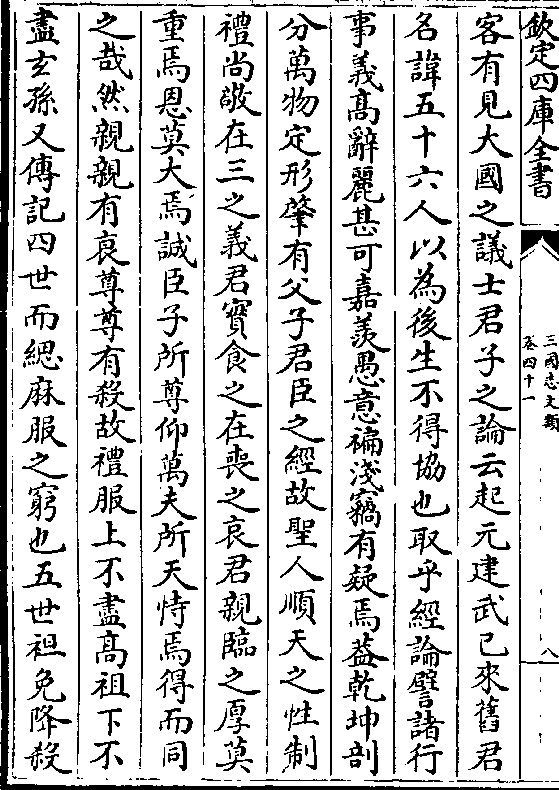 欽定四庫全書
三國志文類
卷四十一
八
客有見大國之議士君子之論云起元建武已來舊君
名諱五十六人以為後生不得協也取乎經論譬諸行
事義髙辭麗甚可嘉羨愚意褊淺竊有疑焉葢乾坤剖
分萬物定形肇有父子君臣之經故聖人順天之性制
禮尚敬在三之義君實食之在喪之哀君親臨之厚莫
重焉恩莫大焉誠臣子所尊仰萬夫所天恃焉得而同
之哉然親親有哀尊尊有殺故禮服上不盡髙祖下不
盡玄孫又傳記四世而緦麻服之窮也五世袒免降殺